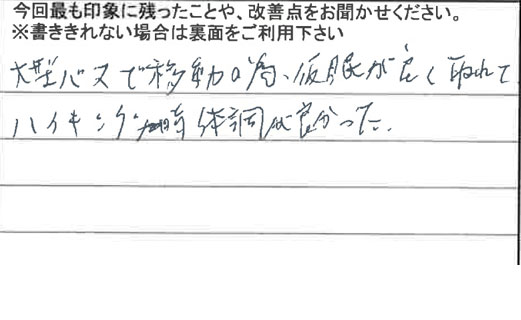 今回最も印象に残ったことや、改善点をお聞かせください。
※書ききれない場合は裏面をご利用下さい
大型バスで移動の為、仮眠が良く取れて
ハイキング時体調が良かった。